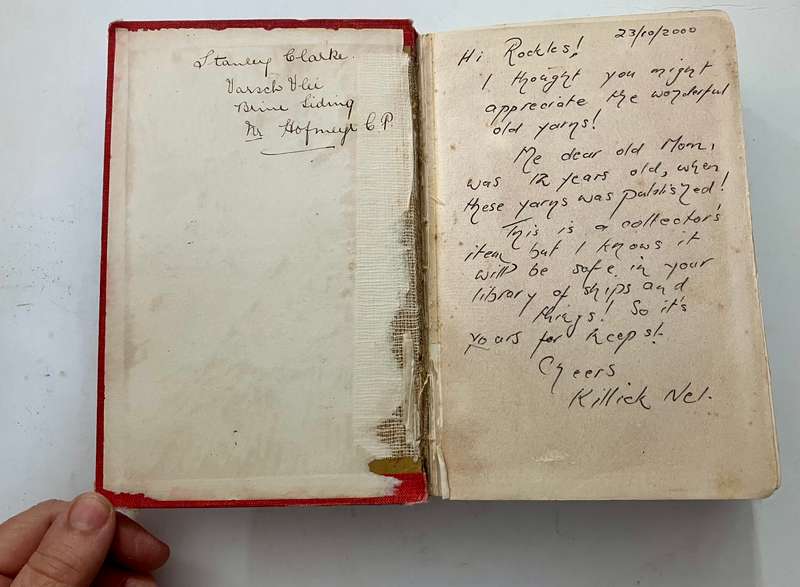 Stanley Clarke.
Varsch Vlei
Brine Siding
Nr Hofmeyr C.P.
23/10/2000
Hi Rockles!
I thought you might
appreciate the wonderful
old yarns!
Me dear old Mom,
was 12 years old, when
these yarns was published!
This is a collector's
item but I knows it
will be safe in your
library of ships and
things! So it's
yours for keeps!
Cheers
Killick Nel.